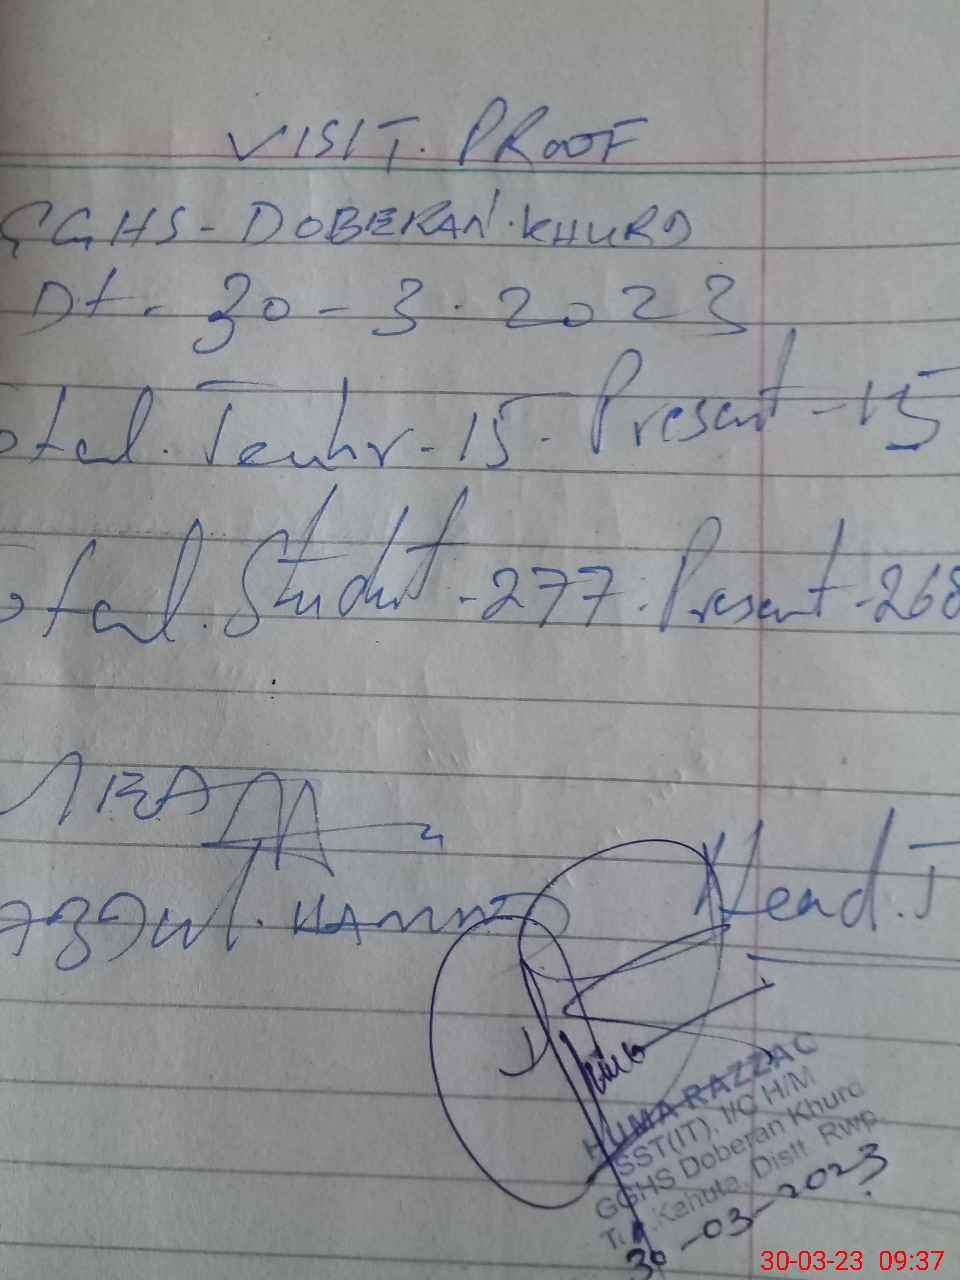 VISIT. PROOF
GGHS - DOBERAN. KHURD
Dt. 30 - 3 . 2023
otal. Teachr - 15 . Present - 15
otal. Student - 277 . Present - 268
Head. T
HUMA RAZZAC
SST(IT), I/C H/M
GGHS Doberan Khurd
Kahuta, Distt Rwp
30-03-2023
30-03-23 09:37